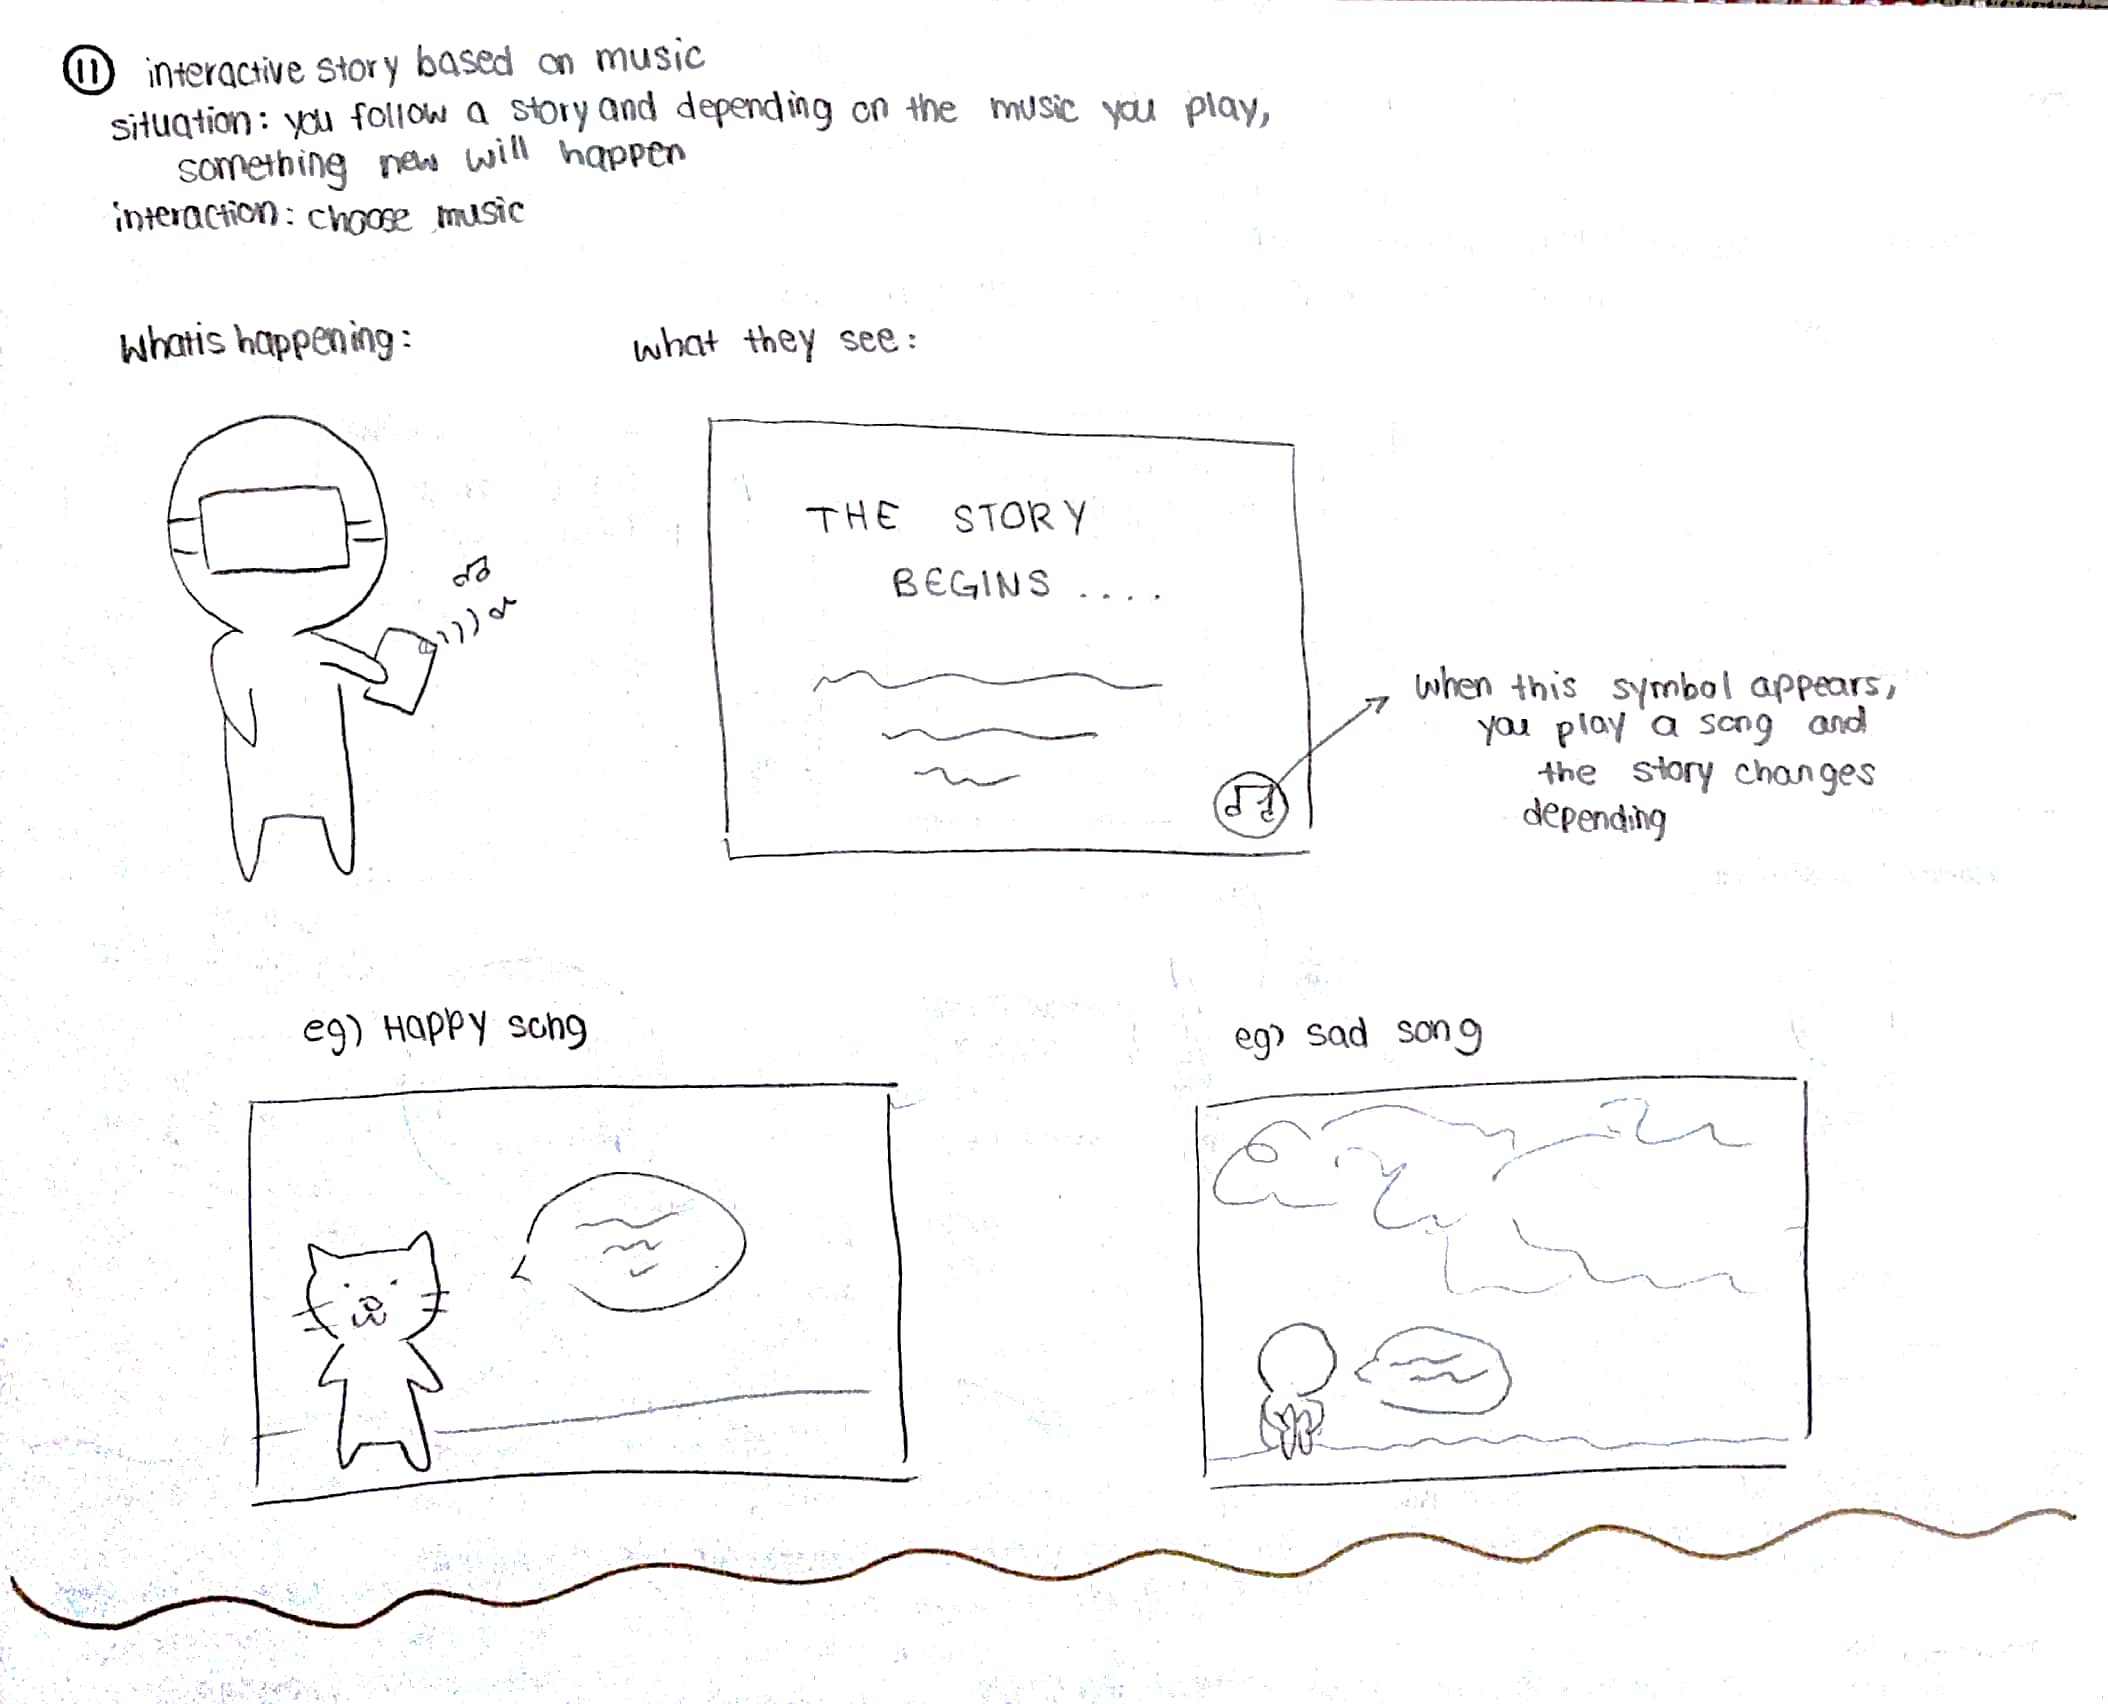 11 interactive story based on music
situation: you follow a story and depending on the music you play,
something new will happen
interaction: choose music
What is happening:
what they see:
THE STORY
BEGINS ....
when this symbol appears,
you play a song and
the story changes
depending
eg) Happy song
eg) sad song